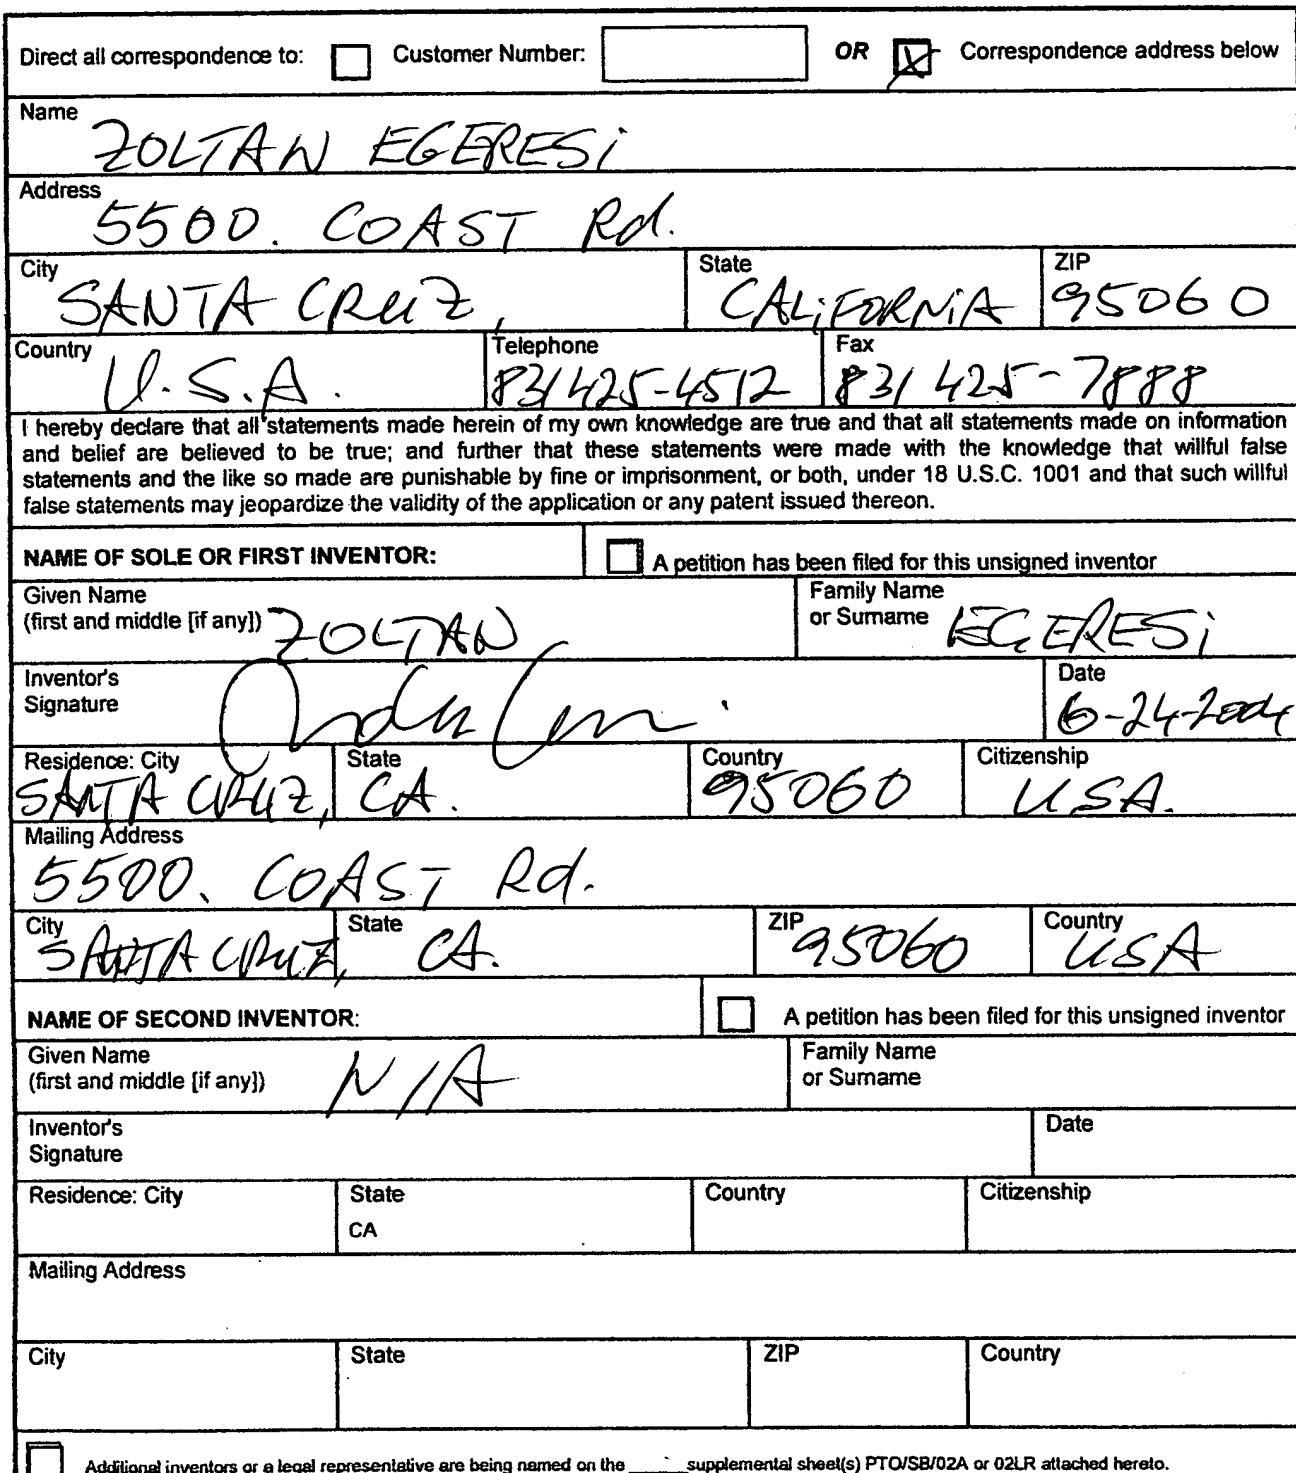 Direct all correspondence to: Customer Number: OR Correspondence address below
Name
ZOLTAN EGERESI
Address
5500. COAST Rd.
City State ZIP
SANTA CRUZ, CALIFORNIA 95060
Country Telephone Fax
U.S.A. 831 425-4512 831 425-7888
I hereby declare that all statements made herein of my own knowledge are true and that all statements made on information
and belief are believed to be true; and further that these statements were made with the knowledge that willful false
statements and the like so made are punishable by fine or imprisonment, or both, under 18 U.S.C. 1001 and that such willful
false statements may jeopardize the validity of the application or any patent issued thereon.
NAME OF SOLE OR FIRST INVENTOR: A petition has been filed for this unsigned inventor
Given Name Family Name
(first and middle [if any]) ZOLTAN or Surname EGERESI
Inventor's Date
Signature 6-24-2004
Residence: City State Country Citizenship
SANTA CRUZ, CA. 95060 USA.
Mailing Address
5500. COAST Rd.
City State ZIP Country
SANTA CRUZ, CA. 95060 USA
NAME OF SECOND INVENTOR: A petition has been filed for this unsigned inventor
Given Name Family Name
(first and middle [if any]) N/A or Surname
Inventor's Date
Signature
Residence: City State Country Citizenship
CA
Mailing Address
City State ZIP Country
Additional inventors or a legal representative are being named on the ______ supplemental sheet(s) PTO/SB/02A or 02LR attached hereto.